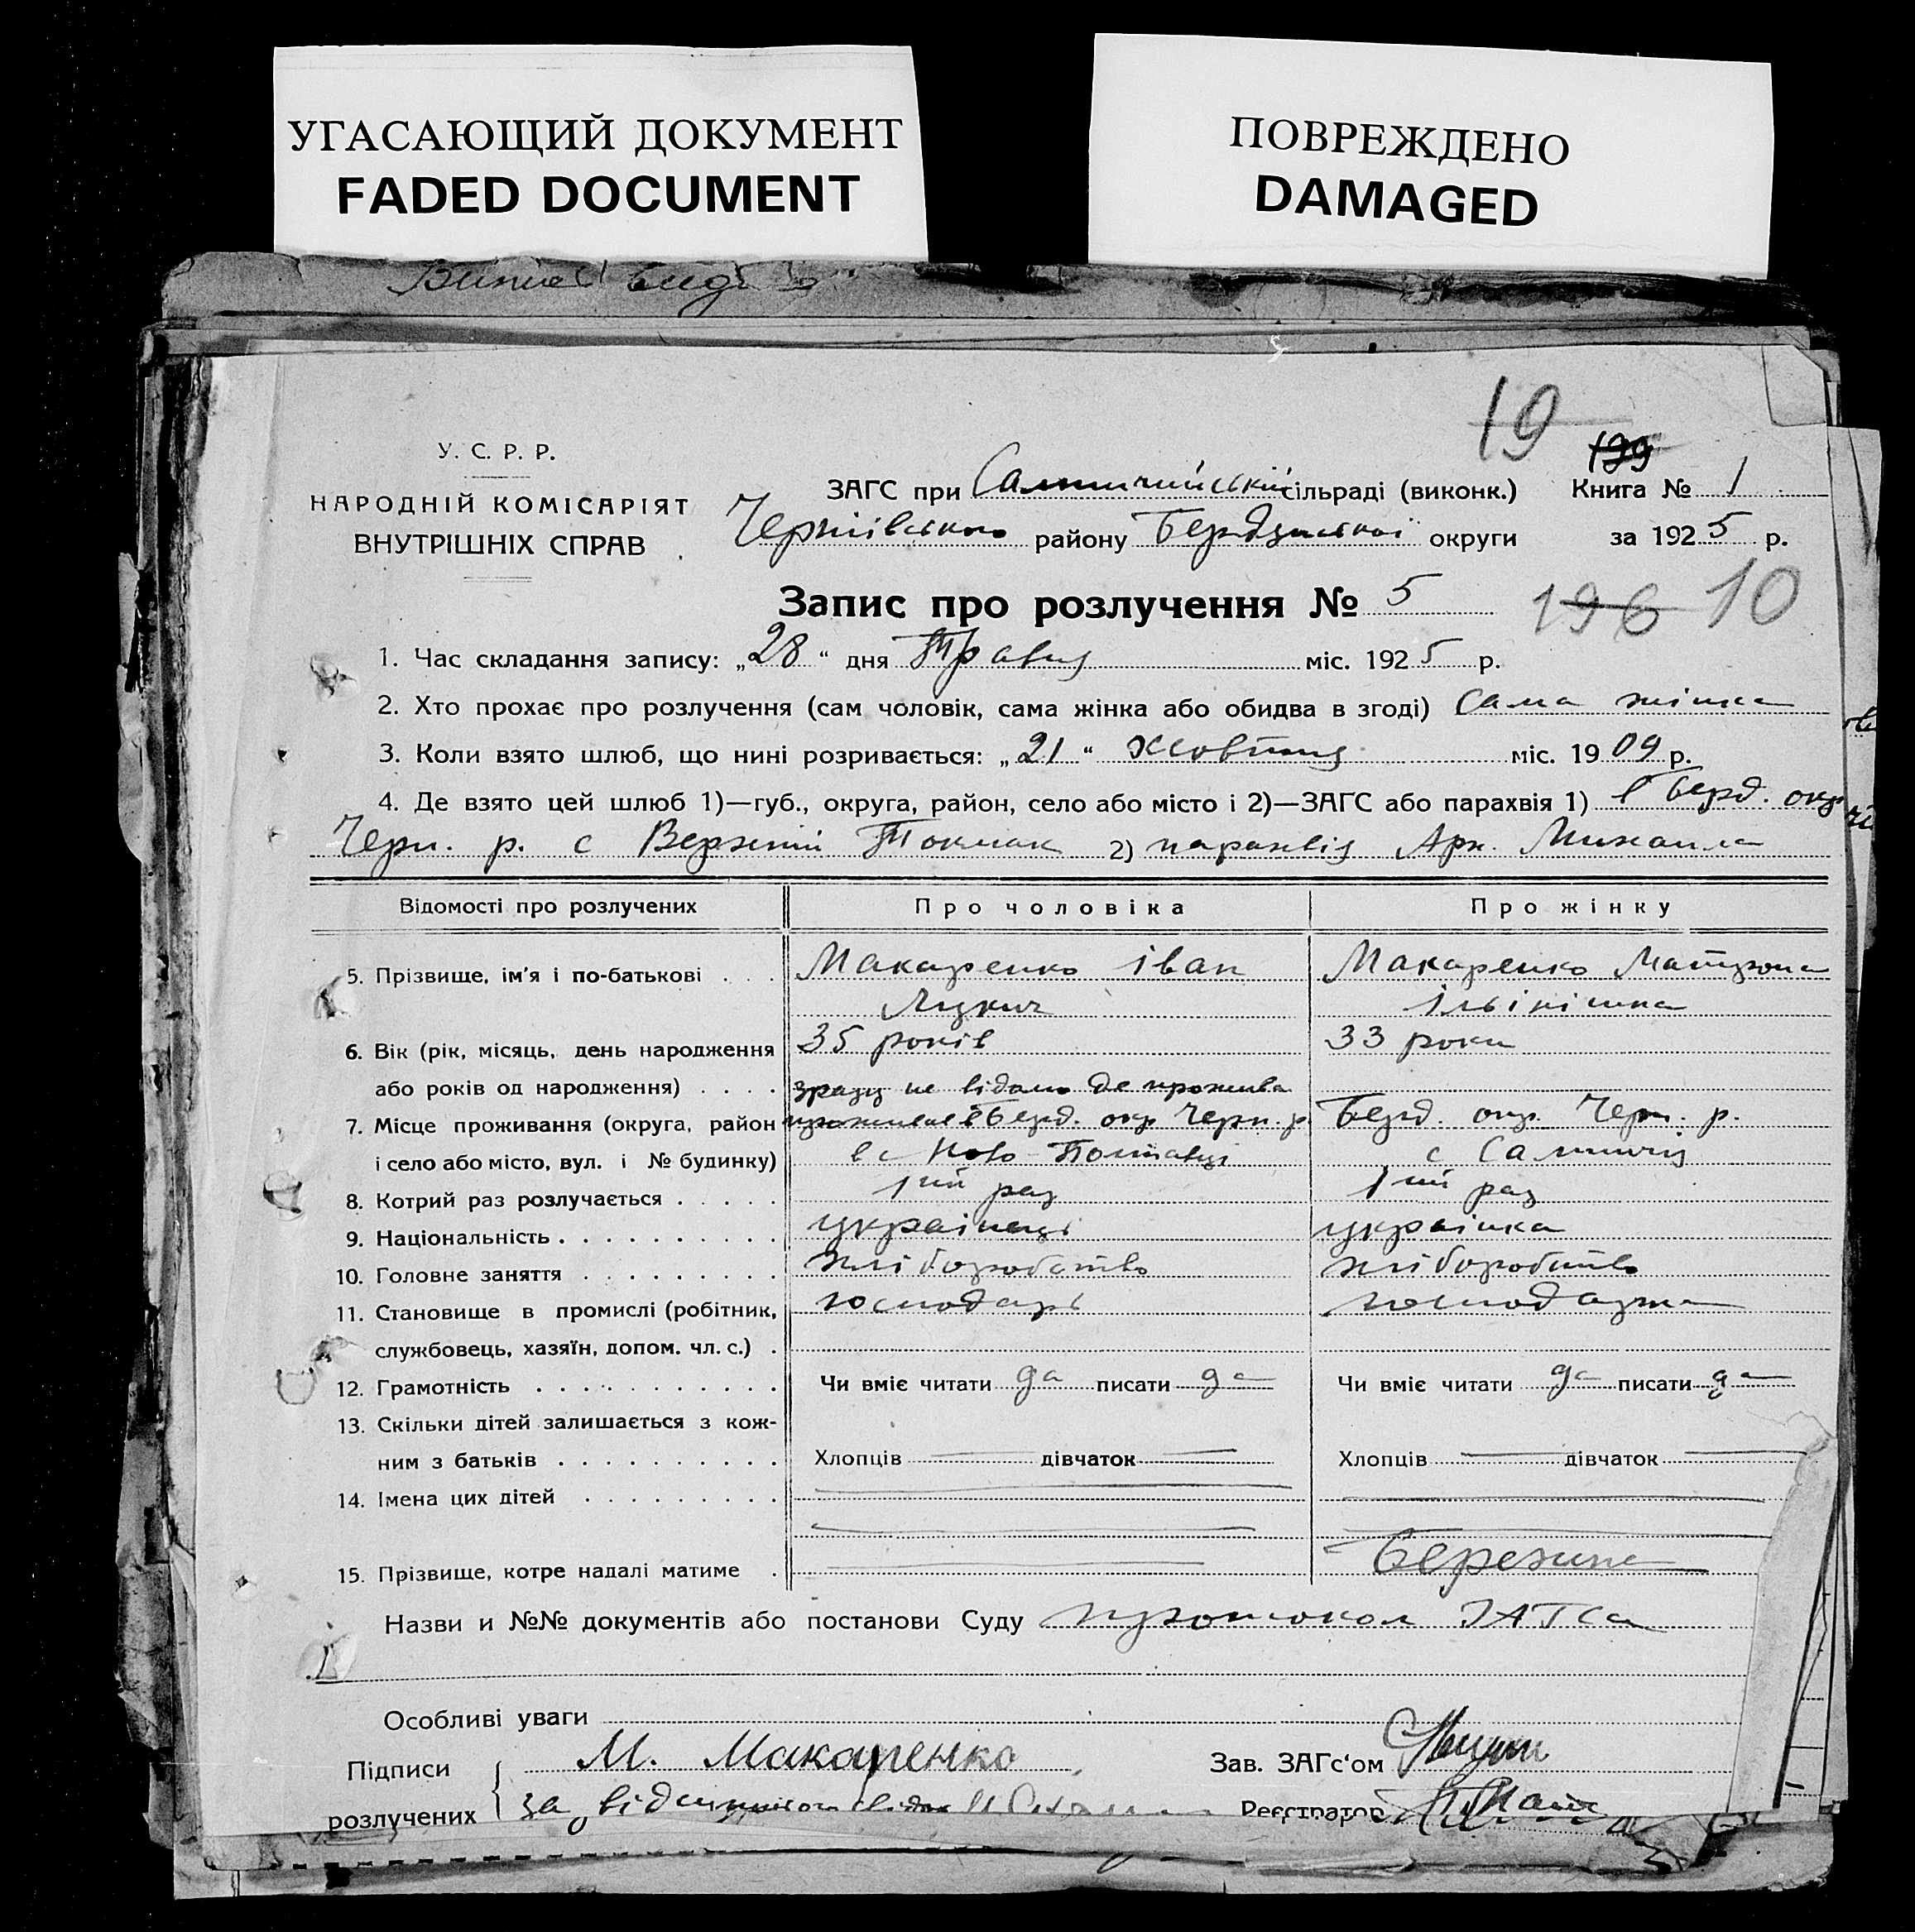 УГАСАЮЩИЙ ДОКУМЕНТ
FADED DOCUMENT
ПОВРЕЖДЕНО
DAMAGED
19
199
У. С. Р. Р.
НАРОДНІЙ КОМІСАРІЯТ
ВНУТРІШНІХ СПРАВ
ЗАГС при сільраді (виконк.) Книга № 1
Черніівського району Бердянської округи за 1925 р.
Запис про розлучення № 5 196 10
1. Час складання запису: „28“ дня Травня міс. 1925 р.
2. Хто прохає про розлучення (сам чоловік, сама жінка або обидва в згоді) Сама жінка
3. Коли взято шлюб, що нині розривається: „21“ Жовтня міс. 1909 р.
4. Де взято цей шлюб 1)—губ., округа, район, село або місто і 2)—ЗАГС або парахвія 1) в Берд. окр.
Черн. р. с Верхній Токмак 2) парахвія Арх. Михаила
Відомості про розлучених Про чоловіка Про жінку
5. Прізвище, ім'я і по-батькові . . . Макаренко Іван Макаренко Матрона
Лукич Ільінішна
6. Вік (рік, місяць, день народження 35 років 33 роки
або років од народження) . . . . зразу не відомо де прожива
7. Місце проживання (округа, район проживав в Берд. окр. Черн. р. Берд. окр. Черн. р.
і село або місто, вул. і № будинку) в с Ново-Полтавці с Салтичія
8. Котрий раз розлучається . . . . . 1ий раз 1ий раз
9. Національність . . . . . . . . . . українець українка
10. Головне заняття . . . . . . . . . хліборобство хліборобство
11. Становище в промислі (робітник, господарь господарка
службовець, хазяїн, допом. чл. с.) .
12. Грамотність . . . . . . . . . . . Чи вміє читати да писати да Чи вміє читати да писати да
13. Скільки дітей залишається з кож-
ним з батьків . . . . . . . . . . Хлопців — дівчаток — Хлопців — дівчаток —
14. Імена цих дітей . . . . . . . . .
15. Прізвище, котре надалі матиме . — Бережна
Назви и №№ документів або постанови Суду протокол ЗАГСа
Особливі уваги
Підписи М. Макаренко Зав. ЗАГс'ом
розлучених за Реєстратор